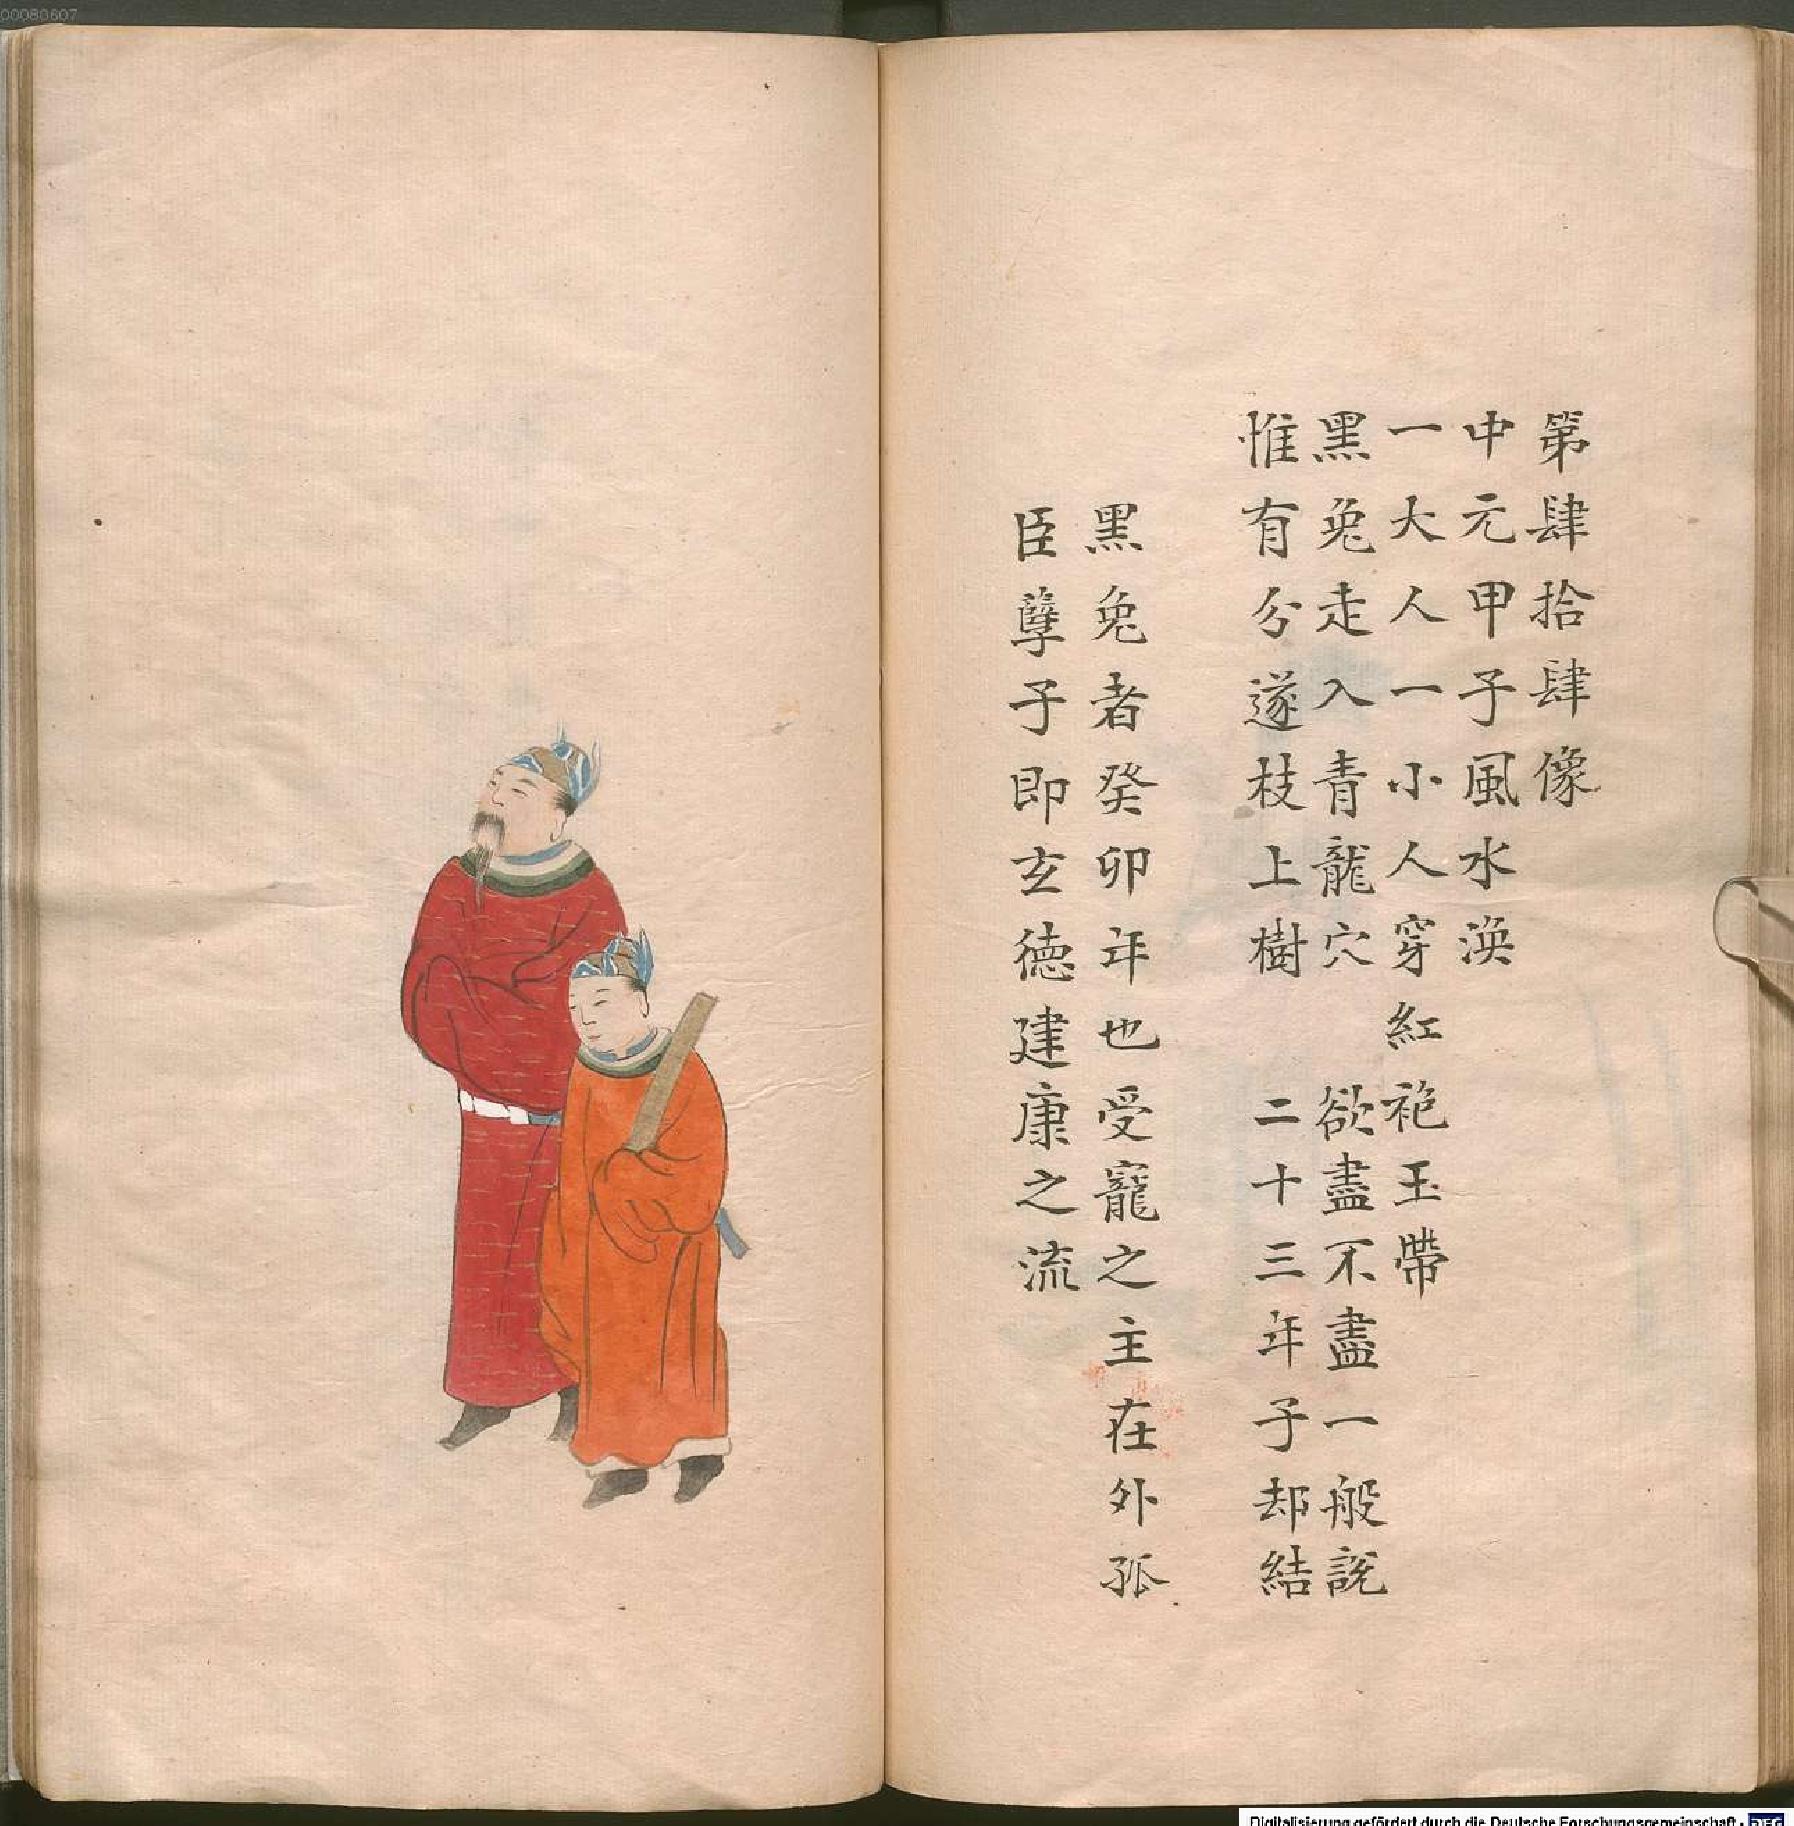 00080607
第肆拾肆像
中元甲子風水渙
一大人一小人穿紅袍玉帶
黑兔走入青龍穴　欲盡不盡一般說
惟有外邊枝上樹　二十三年子却結
黑兔者癸卯年也受寵之主在外孤
臣孽子即玄德建康之流
Digitalisierung gefördert durch die Deutsche Forschungsgemeinschaft - DFG